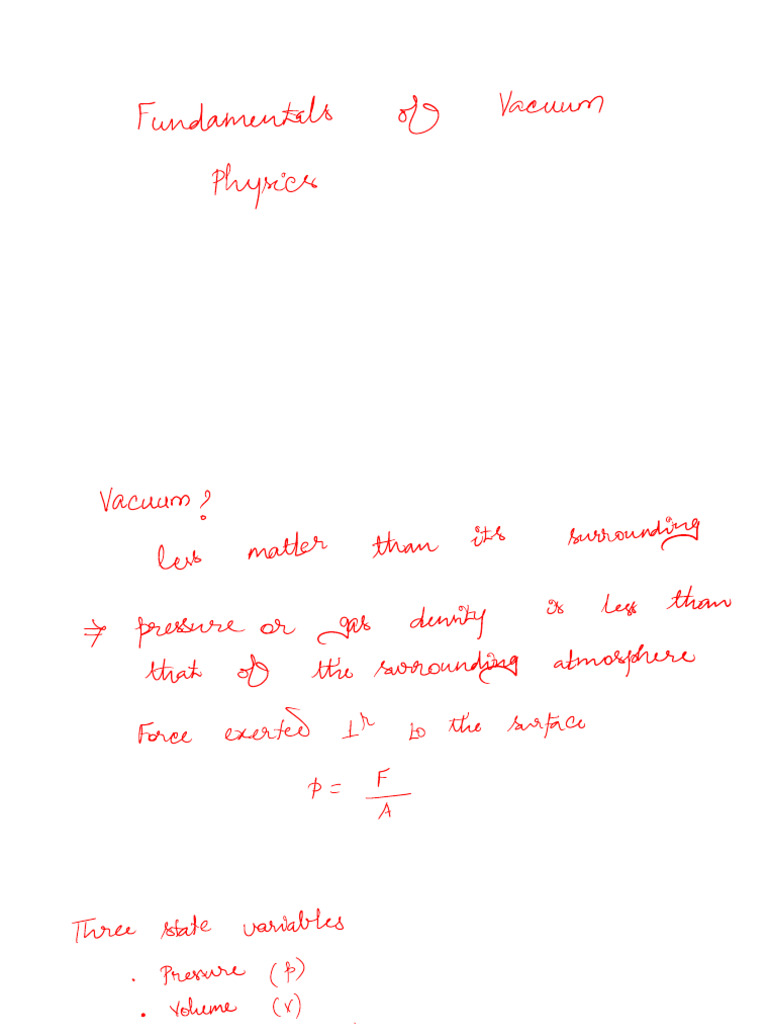 Fundamentals of Vacuum
Physics
Vacuum?
less matter than its surrounding
⇒ pressure or gas density is less than
that of the surrounding atmosphere
Force exerted ⊥r to the surface
p = F
A
Three state variables
• Pressure (p)
• Volume (v)